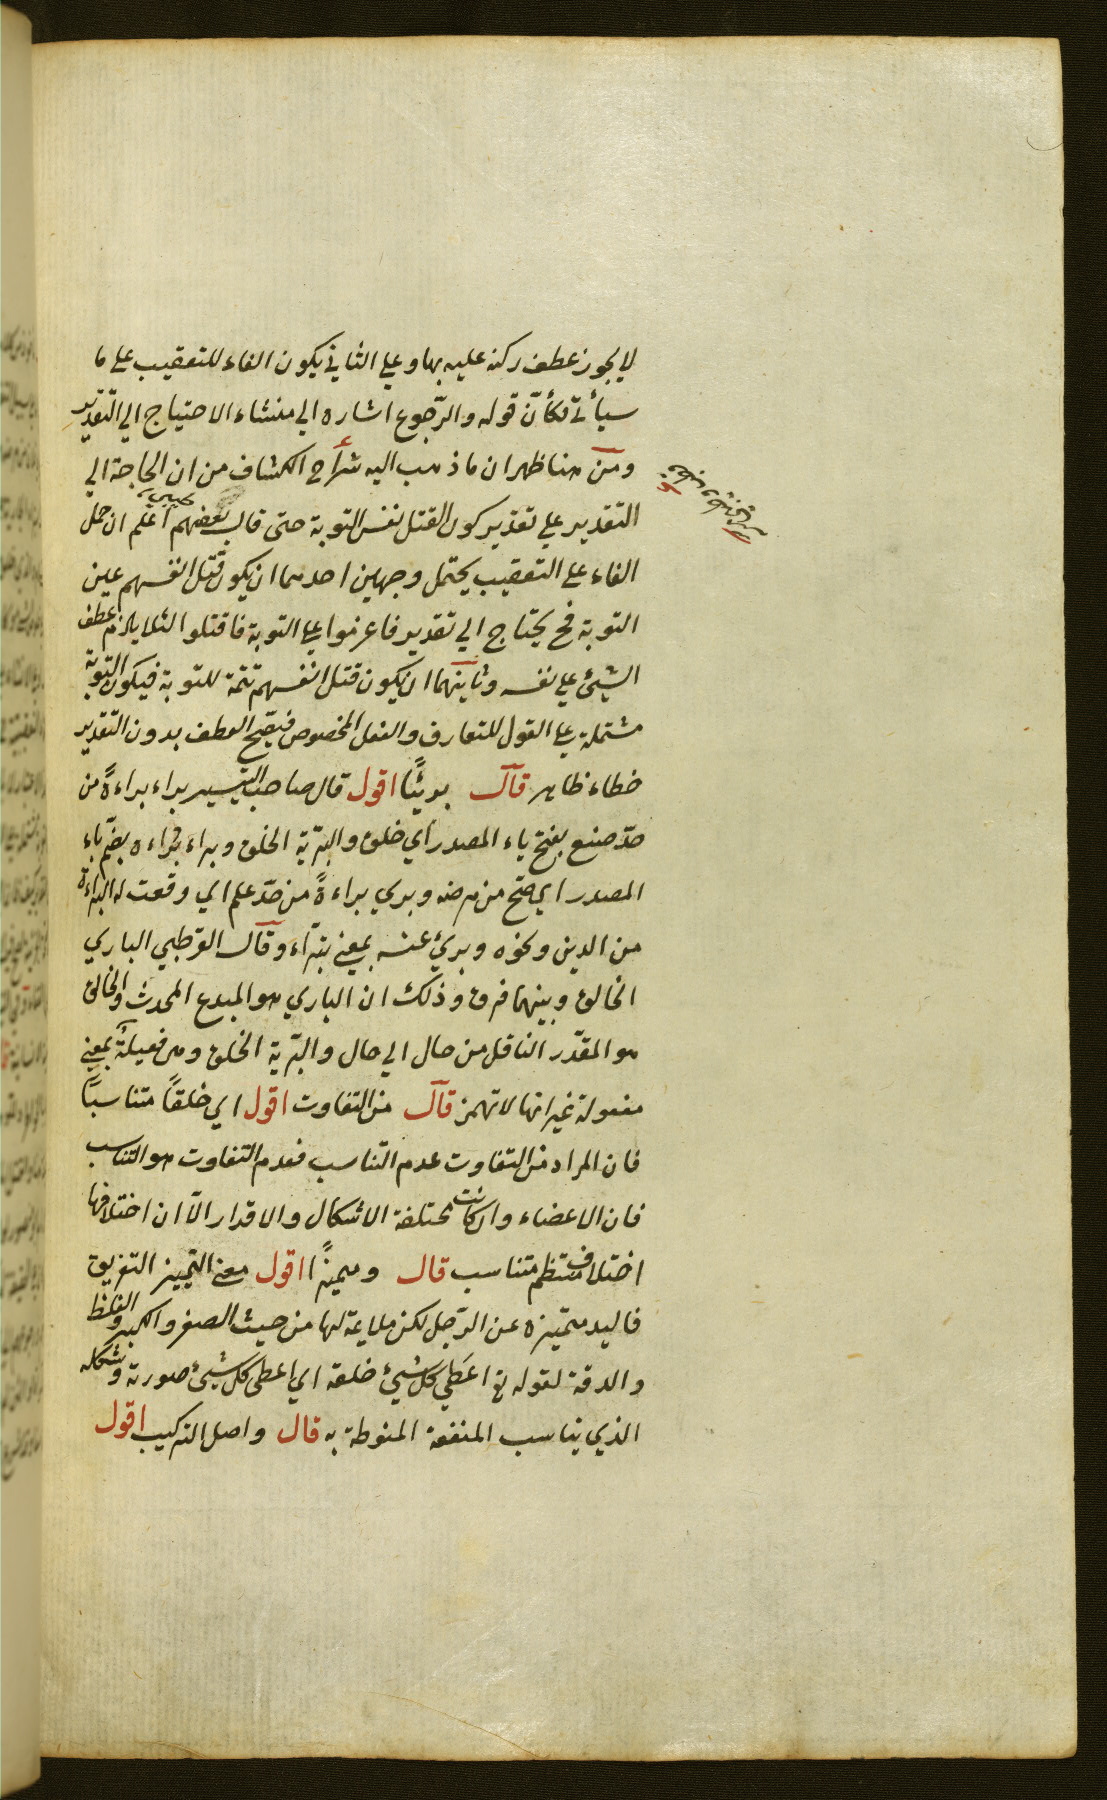 لا يجوز عطف ركنه عليه بها وعلى الثاني يكون الفاء للتعقيب على ما
سيأتي فكأنّ قوله والرّجوع اشاره الي منشاء الاحتياج الي التّقدير
ومن هنا ظهر ان ما ذهب اليه شرّاح الكشاف من ان الحاجة الي
التقدير علي تقدير كون القتل نفس التوبة حتى قال بعضهم اعلم ان حمل
الفاء على التعقيب يحتمل وجهين احدهما ان يكون قتل انفسهم عين
التوبة فح يحتاج الي تقدير فاعزموا علي التوبة فاقتلوا لئلا يلزم عطف
الشيئ علي نفسه وثانيهما ان يكون قتل انفسهم تتمة للتوبة فيكون التوبة
مشتملة علي القول للتعارف والفعل المخصوص فيصّح العطف بدون التّقدير
خطاء ظاهر قال بريئًا اقول قال صاحب التيسير براء براءةً من
حدّ صنع بفتح باء المصدر اي خلق والبرّية الخلق وبراء براءه بضّم باء
المصدر اي صّح من مرضه وبري براءةً من حدّ علم اي وقعت له البراءة
من الدين ونحوه وبرئ عنه بمعني تبرّاء وقال القرطبي الباري
الخالق وبينهما فرق وذلك ان الباري هو المبدع المحدث والخالق
هو المقدّر الناقل من حال الي حال والبرّية الخلق وهي فعيلةٌ بمعني
مفعولة غير انها لا تهمز قال من التفاوت اقول اي خلقاً متناسبًا
فان المراد من التفاوت عدم التّناسب فعدم التفاوت هو التّناسب
فان الاعضاء وان كانت مختلفة الاشكال والاقدار الّا ان اختلافها
اختلاف منتظم متناسب قال ومميزًا اقول معني التّمييز التفريق
فاليد متميّزه عن الرّجل لكن ملايمة لها من حيث الصغر والكبر والغلظ
والدقة لقوله تع اعطي كل شيئ خلقه اي اعطي كل شيئ صورته وشكله
الذي يناسب المنفعة المنوطة به قال واصل التركيب اقول